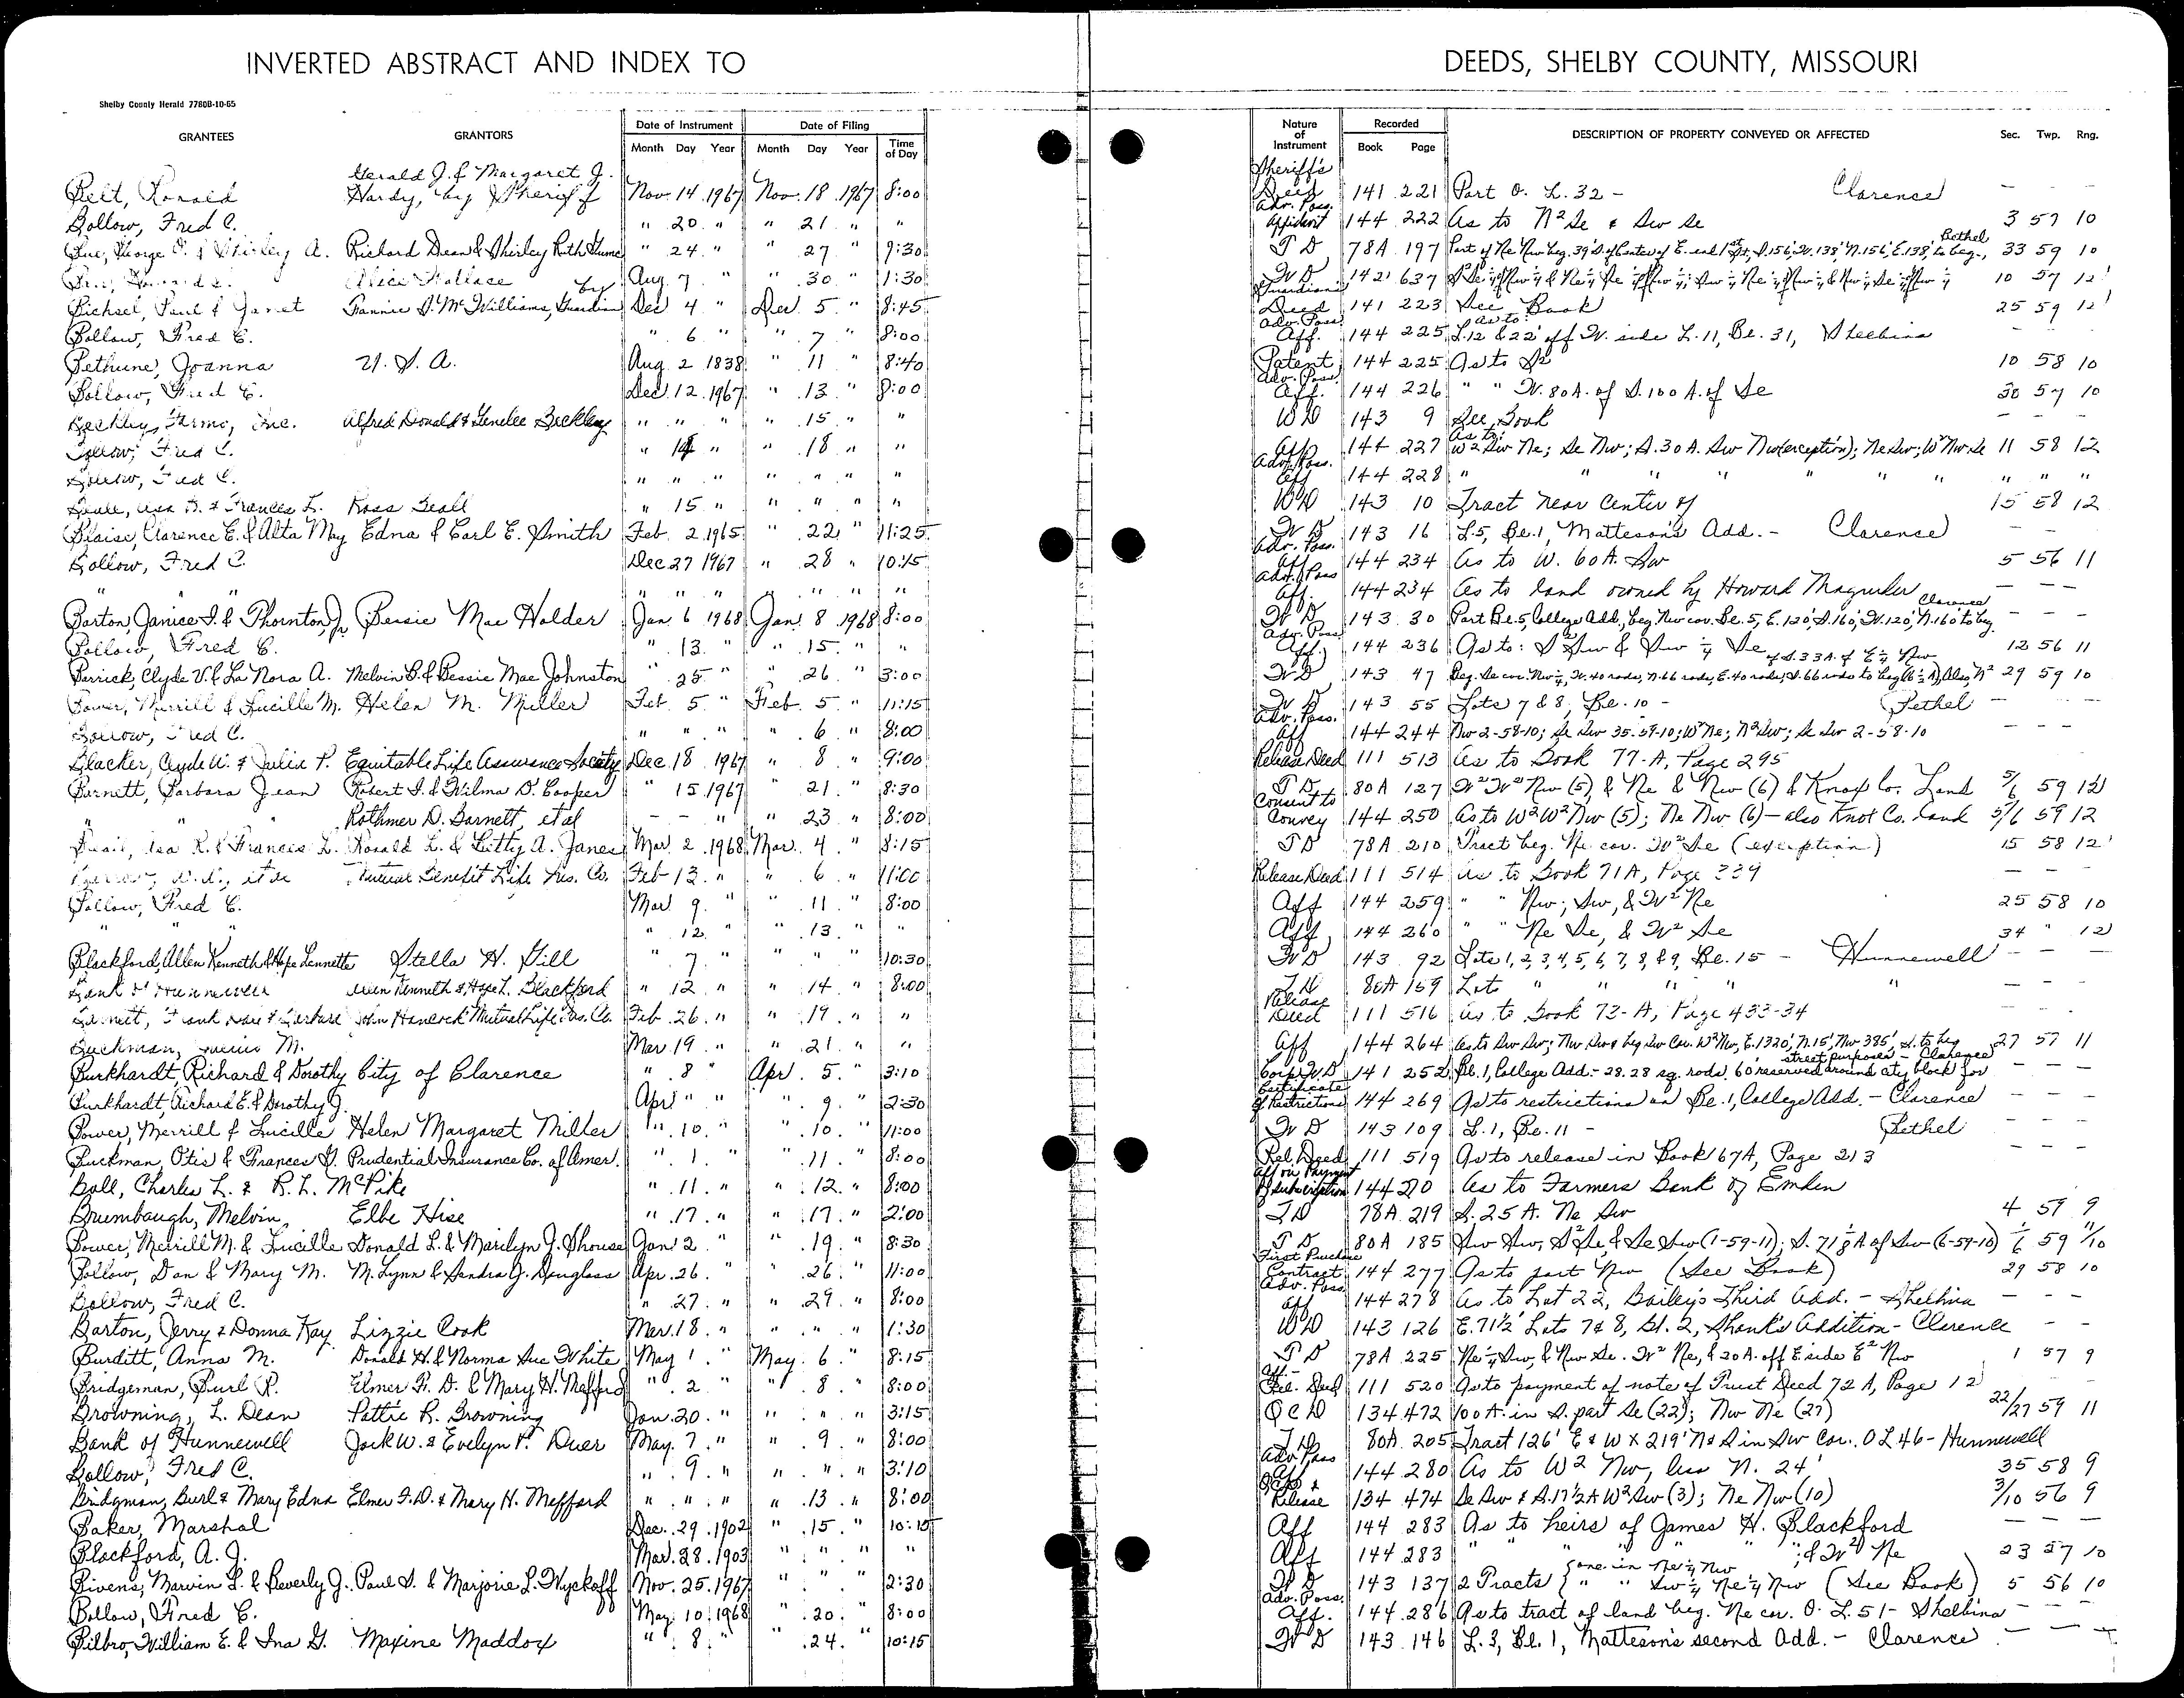 INVERTED ABSTRACT AND INDEX TO DEEDS, SHELBY COUNTY, MISSOURI
Shelby County Herald 7780B-10-65
GRANTEES GRANTORS Date of Instrument Date of Filing Nature of Instrument Recorded DESCRIPTION OF PROPERTY CONVEYED OR AFFECTED Sec. Twp. Rng.
Month Day Year Month Day Year Time of Day Book Page
Gerald J. & Margaret J. Sheriff's
Belt, Ronald Hardy, by Sheriff Nov. 14 1967 Nov. 18 1967 8:00 Deed 141 221 Part O. L. 32 - Clarence - - -
Bollow, Fred C. " 20 " " 21 " " Adv. Poss. Affidavit 144 222 As to N2 Se & Sw Se 3 57 10
George O. & Shirley A. Richard Dean & Shirley Ruth " 24 " " 27 " 9:30 T D 78A 197 Part of Ne Nw beg. 39' S. of Center of E. end 1st St., S. 156', W. 138', N. 156', E. 138', to beg., Bethel 33 59 10
Alice Wallace Aug. 7 " " 30 " 1:30 W D 142 637 10 57 12
Bichsel, Paul & Janet Fannie D. McWilliams, by Guardian Dec 4 " Dec. 5 " 8:45 Guardian's Deed 141 223 See Book 25 59 12
Bollow, Fred C. " 6 " " 7 " 8:00 Adv. Poss. Aff. 144 225 As to L.12 & 22' off W. side L. 11, Bl. 31, Shelbina - -
Bethune, Joanna U. S. A. Aug. 2 1838 " 11 " 8:40 Patent 144 225 As to S2 10 58 10
Bollow, Fred C. Dec. 12 1967 " 13 " 8:00 Adv. Poss. Aff. 144 226 " " W. 80A. of S. 100 A. of Se 30 57 10
Beckley Farms, Inc. Alfred Donald & Genelee Beckley " " " " 15 " " WD 143 9 See Book - - -
Bollow, Fred C. " 14 " " 18 " " Aff 144 227 As to W2 Sw Ne; Se Nw; S. 30 A. Sw Nw (exception); Ne Sw; W2 Nw Se 11 58 12
Bollow, Fred C. " " " " " " " Adv. Poss. Aff 144 228 " " " " " " " " " "
Beall, Asa R. & Frances L. Ross Beall " 15 " " " " " WD 143 10 Tract near Center of 15 58 12
Blaise, Clarence E. & Alta May Edna & Earl E. Smith Feb. 2 1965 " 22 " 11:25 W D 143 16 L.5, Bl.1, Matteson's Add. - Clarence - -
Bollow, Fred C. Dec 27 1967 " 28 " 10:15 Adv. Poss. Aff 144 234 As to W. 60 A. Sw 5 56 11
" " " " " " " " " Adv. Poss Aff. 144 234 As to land owned by Howard Magruder - - -
Barton, Janice I. & Thornton, Jr. Bessie Mae Holder Jan. 6 1968 Jan. 8 1968 8:00 W D 143 30 Part Bl. 5, College Add., beg. Nw cor. Bl. 5, E. 120', S. 160', W. 120', N. 160' to beg. Clarence - - -
Bollow, Fred C. " 13 " " 15 " " Adv. Poss. Aff. 144 236 As to: S2 Sw & Sw 1/4 Se 12 56 11
Berrick, Clyde V. & La Nora A. Melvin B. & Bessie Mae Johnston " 25 " " 26 " 3:00 W D 143 47 Beg. Se cor. Nw 1/4, W. 40 rods, N. 66 rods, E. 40 rods, S. 66 rods to beg. (16 1/2 A), Also, N2 of S. 33 A. of E 1/2 Nw 29 59 10
Bower, Merrill & Lucille M. Helen M. Miller Feb. 5 " Feb. 5 " 11:15 W D 143 55 Lots 7 & 8, Bl. 10 - Bethel
Bollow, Fred C. " " " " 6 " 8:00 Adv. Poss. Aff 144 244 Nw 2-58-10; Se Sw 35-59-10; W2 Ne; N2 Sw; Se Sw 2-58-10 - - -
Blacker, Clyde W. & Julia P. Equitable Life Assurance Society Dec. 18 1967 " 8 " 9:00 Release Deed 111 513 As to Book 77-A, Page 295
Barnett, Barbara Jean Robert I. & Wilma D. Cooper " 15 1967 " 21 " 8:30 T D 80A 127 W2 W2 Nw (5) & Ne & Nw (6) & Knox Co. Land 5/6 59 12
" " Rothmer D. Barnett, et al - - " " 23 " 8:00 Consent to Convey 144 250 As to W2 W2 Nw (5); Ne Nw (6) - also Knox Co. land 5/6 59 12
Beall, Asa R. & Frances L. Ronald L. & Betty A. Janes Mar. 2 1968 Mar. 4 " 8:15 T D 78A 210 Tract beg. Ne cor. W2 Se (exception) 15 58 12
et ux Mutual Benefit Life Ins. Co. Feb 13 " " 6 " 11:00 Release Deed 111 514 As to Book 71A, Page 339 - - -
Bollow, Fred C. Mar 9 " " 11 " 8:00 Aff 144 259 " " Nw; Sw, & W2 Ne 25 58 10
" " " " 12 " " 13 " " Aff 144 260 " " Ne Se, & W2 Se 34 " 12
Blackford, Allen Kenneth & Hope Lennette Stella H. Gill " 7 " " " " 10:30 W D 143 92 Lots 1, 2, 3, 4, 5, 6, 7, 8, & 9, Bl. 15 - Hunnewell - - -
Bank of Hunnewell Allen Kenneth & Hope L. Blackford " 12 " " 14 " 8:00 T D 80A 159 Lots " " " " " - - -
Barnett, Frank & Barbara John Hancock Mutual Life Ins. Co. Feb. 26 " " 19 " " Release Deed 111 516 As to Book 73-A, Page 433-34
Buckman, M. Mar. 19 " " 21 " " Aff 144 264 As to Sw Sw; Nw Sw & beg Sw Cor. W2 Nw, E. 1320', N. 15', Nw 385', S. to beg 27 57 11
Burkhardt, Richard & Dorothy City of Clarence " 8 " Apr. 5 " 3:10 Corp. W D 141 252 Bl. 1, College Add. - 28.28 sq. rods. 60' reserved around city block for street purposes - Clarence - - -
Burkhardt, Richard E. & Dorothy J. April " " " 9 " 2:30 Certificate of Restrictions 144 269 As to restrictions on Bl. 1, College Add. - Clarence - - -
Bower, Merrill & Lucille Helen Margaret Miller " 10 " " 10 " 11:00 W D 143 109 L. 1, Bl. 11 - Bethel - - -
Buckman, Otis & Frances G. Prudential Insurance Co. of Amer. " 1 " " 11 " 8:00 Rel. Deed 111 519 As to release in Book 67A, Page 213 - - -
Ball, Charles L. & R. L. McPike " 11 " " 12 " 8:00 Aff on Payment of subscription 144 270 As to Farmers Bank of Emden
Brumbaugh, Melvin Elbe Hise " 17 " " 17 " 2:00 T D 78A 219 S. 25 A. Ne Sw 4 59 9
Bower, Merrill M. & Lucille Donald L. & Marilyn J. Shouse Jan 2 " " 19 " 8:30 T D 80A 185 Sw Sw, S2 Se, & Se Sw (1-59-11); S. 71 1/8 A of Sw (6-59-10) 1/6 59 11/10
Bollow, Dan & Mary M. M. Lynn & Sandra J. Douglass Apr. 26 " " 26 " 11:00 First Purchase Contract 144 277 As to part Nw (See Book) 29 58 10
Bollow, Fred C. " 27 " " 29 " 8:00 Adv. Poss. Aff 144 278 As to Lot 22, Bailey's Third Add. - Shelbina - - -
Barton, Jerry & Donna Kay Lizzie Cook Mar. 18 " " " " 1:30 WD 143 126 E. 71 1/2' Lots 7 & 8, Bl. 2, Shank's Addition - Clarence - -
Burditt, Anna M. Donald H. & Norma Sue White May 1 " May 6 " 8:15 T D 78A 225 Ne 1/4 Sw, & Nw Se. W2 Ne, & 20 A. off E. side E2 Nw 1 57 9
Bridgeman, Burl R. Elmer F. D. & Mary H. Mefford " 2 " " 8 " 8:00 Aff. Rel. Deed 111 520 As to payment of note of Trust Deed 72 A, Page 12
Browning, L. Dean Pattie R. Browning Jan. 20 " " " " 3:15 Q C D 134 472 100 A. in S. part Se (22); Nw Ne (27) 22/27 59 11
Bank of Hunnewell Jack W. & Evelyn F. Duer May 7 " " 9 " 8:00 T D 80A 205 Tract 126' E & W X 219' N & S in Sw Cor. O L 46 - Hunnewell
Bollow, Fred C. " 9 " " " " 3:10 Adv Poss Aff 144 280 As to W2 Nw, less N. 24' 35 58 9
Bridgman, Burl & Mary Edna Elmer F. D. & Mary H. Mefford " " " " 13 " 8:00 QCD & Release 134 474 Se Sw & S. 17 1/2 A W2 Sw (3); Ne Nw (10) 3/10 56 9
Baker, Marshal Dec. 29 1902 " 15 " 10:15 Aff 144 283 As to heirs of James H. Blackford - - -
Blackford, A. J. Mar. 28 1903 " " " " Aff 144 283 " " " " " " ; & W2 Ne 23 57 10
Bivens, Marvin L. & Beverly J. Paul S. & Marjorie L. Wyckoff Nov. 25 1967 " " " 2:30 W D 143 137 2 Tracts { one in Ne 1/4 Nw " " Sw 1/4 Ne 1/4 Nw (See Book) 5 56 10
Bollow, Fred C. May 10 1968 " 20 " 8:00 Adv. Poss. Aff. 144 286 As to tract of land beg. Ne cor. O. L. 51 - Shelbina - - -
Bilbro, William E. & Ina G. Maxine Maddox " 8 " " 24 " 10:15 W D 143 146 L. 3, Bl. 1, Matteson's second Add. - Clarence - - -